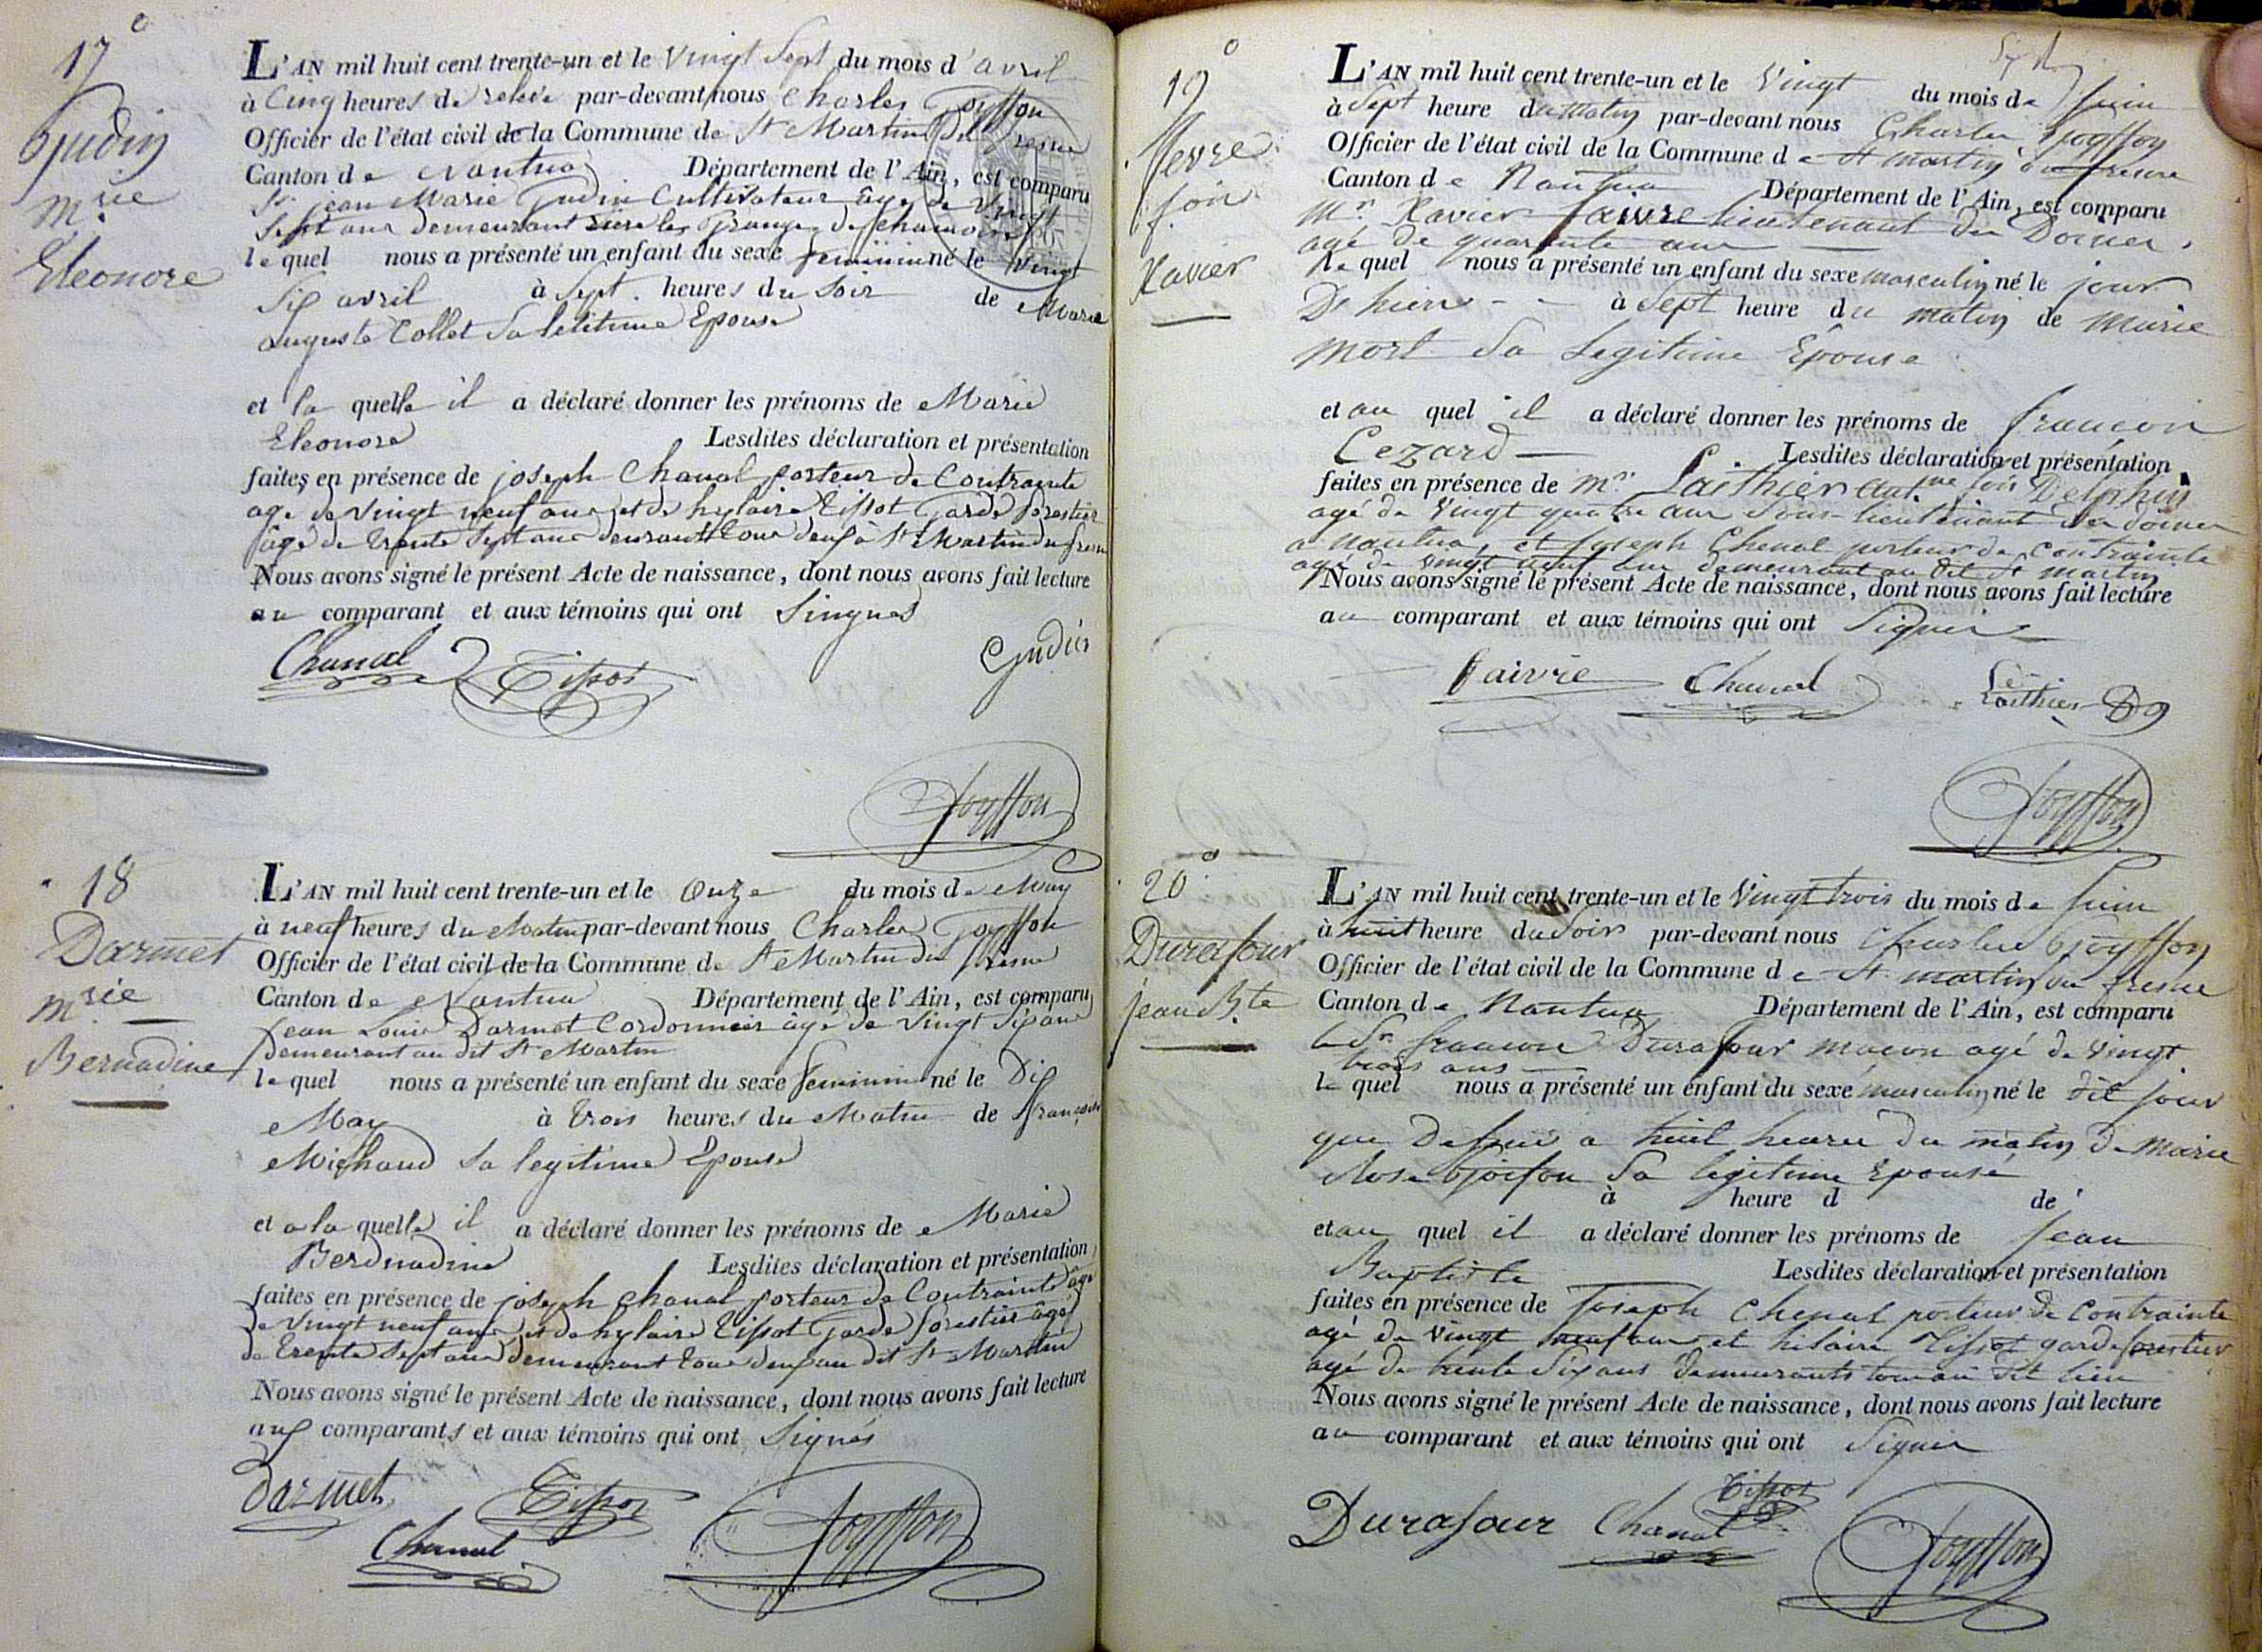 17°
Gudin
Mrie
Eleonore
L'AN mil huit cent trente-un et le vingt Sept du mois d'avril
à Cinq heures de relevé par-devant nous Charles Goyffon
Officier de l'état civil de la Commune de St Martin du fresne
Canton de Nantua Département de l'Ain, est comparu
Sr jean Marie Gudin Cultivateur âgé de Vingt
Sept ans demeurant sur les Granges de
le quel nous a présenté un enfant du sexe feminin né le Vingt
Six avril à Sept heures du Soir de Marie
auguste Collet Sa letitime Epouse
et la quelle il a déclaré donner les prénoms de Marie
Eleonore Lesdites déclaration et présentation
faites en présence de joseph Chanal porteur de Contrainte
age de Vingt neuf ans et de hylaire Tissot Garde forestier
âgé de Trente Sept ans demeurant tous deux à St Martin du fresne
Nous avons signé le présent Acte de naissance, dont nous avons fait lecture
au comparant et aux témoins qui ont Singnes
Chanal Tissot Gudin
Goyffon
18
Darmet
Mrie
Bernadine
L'AN mil huit cent trente-un et le Onze du mois de May
à neuf heures du Matin par-devant nous Charles Goyffon
Officier de l'état civil de la Commune de St Martin du fresne
Canton de Nantua Département de l'Ain, est comparu
Jean Louis Darmet Cordonnier âgé de Vingt Six ans
demeurant au dit St Martin
le quel nous a présenté un enfant du sexe feminin né le Dix
May à trois heures du Matin de françoise
Michaud Sa legitime Epouse
et a la quelle il a déclaré donner les prénoms de Marie
Berdnadine Lesdites déclaration et présentation
faites en présence de joseph Chanal porteur de Contrainte âgé
de Vingt neuf ans et de hylaire Tissot Garde forestier âgé
de Trente Sept ans demeurant tous deux au dit St Martin
Nous avons signé le présent Acte de naissance, dont nous avons fait lecture
aux comparants et aux témoins qui ont Signés
Darmet Tissot
Chanal Goyffon
19°
fevre
fois
Xavier
Sept
L'AN mil huit cent trente-un et le Vingt du mois de Juin
à Sept heure du Matin par-devant nous Charles Goyffon
Officier de l'état civil de la Commune de St martin du fresne
Canton de Nantua Département de l'Ain, est comparu
Mr Xavier faivre lieutenant des Doines
agé de quarante ans
le quel nous a présenté un enfant du sexe masculin né le jour
D'hier à Sept heure du matin de marie
Mort Sa Legitime Epouse
et au quel il a déclaré donner les prénoms de francois
Cezard Lesdites déclaration et présentation
faites en présence de Mr Laithier fois Delphin
agé de Vingt quatre ans Sous-lieutenant des doines
a nantua, et Joseph Chenal porteur de contrainte
agé de vingt neuf ans demeurant au dit St martin
Nous avons signé le présent Acte de naissance, dont nous avons fait lecture
au comparant et aux témoins qui ont Signés
faivre Chanal Laithier
Goyffon
20°
Durafour
jean Bte
L'AN mil huit cent trente-un et le Vingt trois du mois de Juin
à huit heure du Soir par-devant nous Charles Goyffon
Officier de l'état civil de la Commune de St martin du fresne
Canton de Nantua Département de l'Ain, est comparu
le Sr francois Durafour macon agé de Vingt
trois ans
le quel nous a présenté un enfant du sexe masculin né le dit jour
que Dessus a huit heures du matin de Marie
Rose Goifon Sa legitime Epouse
à heure d de
et au quel il a déclaré donner les prénoms de Jean
Baptiste Lesdites déclaration et présentation
faites en présence de Joseph Chenal porteur de Contrainte
agé de Vingt neuf ans et hilaire Tissot garde forestier
agé de trente Six ans demeurants tous au dit lieu
Nous avons signé le présent Acte de naissance, dont nous avons fait lecture
au comparant et aux témoins qui ont Signés
Durafour Chanal Tissot
Goyffon